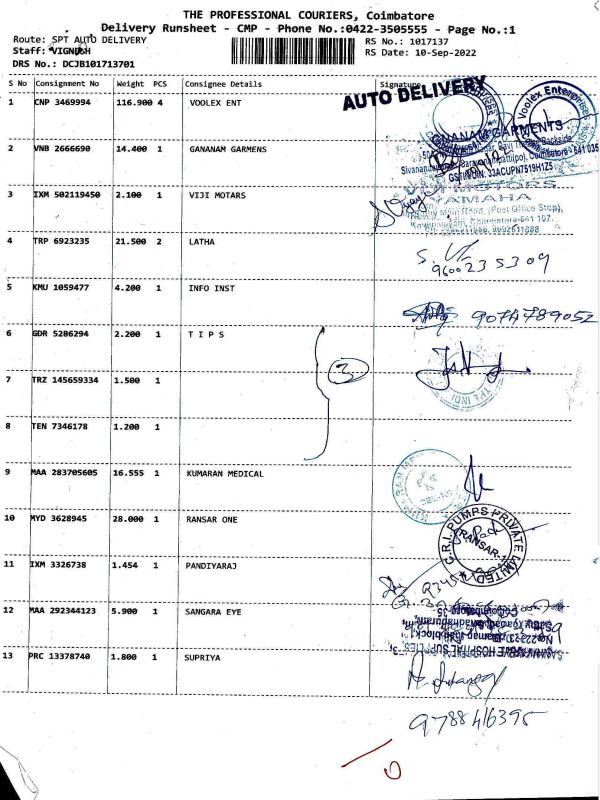 THE PROFESSIONAL COURIERS, Coimbatore
Delivery Runsheet - CMP - Phone No.:0422-3505555 - Page No.:1
Route: SPT AUTO DELIVERY
RS No.: 1017137
Staff: VIGNESH
RS Date: 10-Sep-2022
DRS No.: DCJB101713701
S No Consignment No Weight PCS Consignee Details Signature
AUTO DELIVERY
1 CNP 3469994 116.900 4 VOOLEX ENT
Voolex Enterprises
GNANAM GARMENTS
2 VNB 2666690 14.400 1 GANANAM GARMENS
Coimbatore - 641 035
GSTIN/UIN: 33ACUPN7519H1Z5
3 IXM 502119450 2.100 1 VIJI MOTARS
VIJI MOTORS
YAMAHA
(Post Office Stop),
4 TRP 6923235 21.500 2 LATHA
9600235309
5 KMU 1059477 4.200 1 INFO INST
9074789052
6 GDR 5286294 2.200 1 T I P S
3
7 TRZ 145659334 1.500 1
8 TEN 7346178 1.200 1
9 MAA 283705605 16.555 1 KUMARAN MEDICAL
10 MYD 3628945 28.000 1 RANSAR ONE
C.R.I. PUMPS PRIVATE LIMITED
RANSAR-1
11 IXM 3326738 1.454 1 PANDIYARAJ
12 MAA 292344123 5.900 1 SANGARA EYE
13 PRC 13378740 1.800 1 SUPRIYA
9788416395